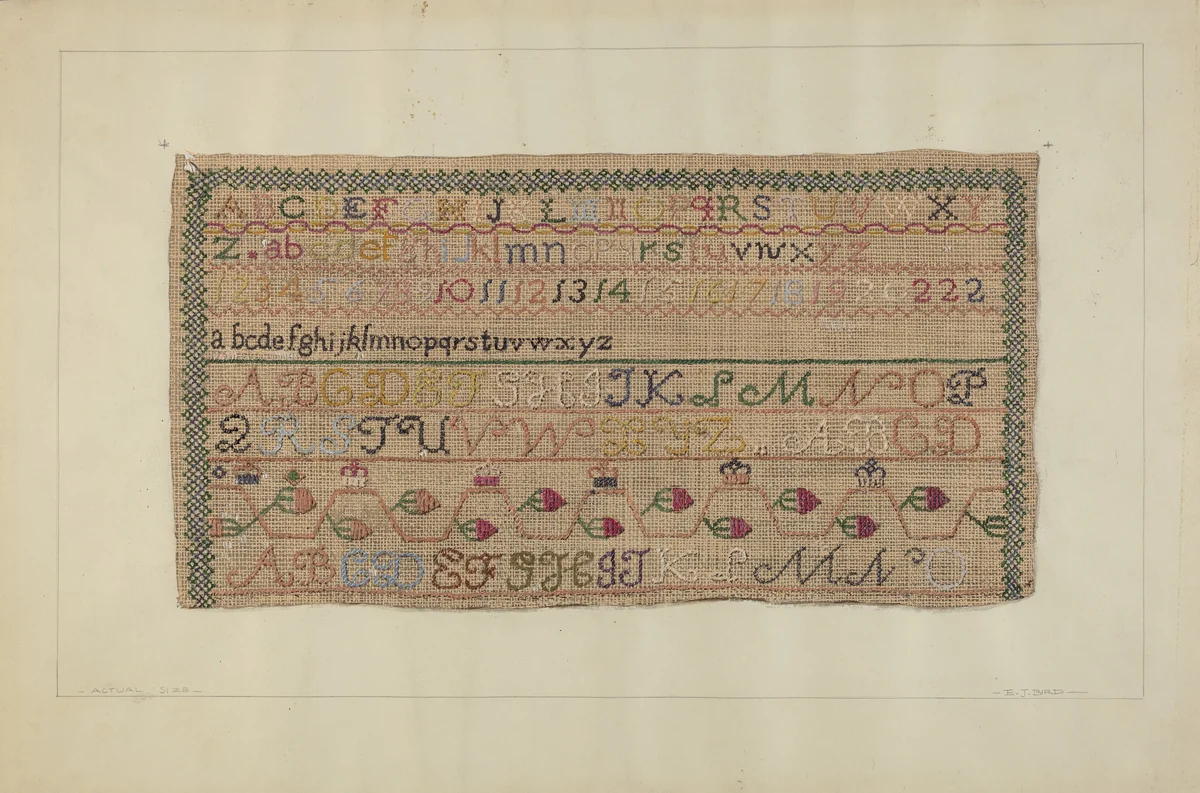 A B C D E F G H I J K L M N O P q R S T U V W X Y
Z . a b c d e f g h i J k l m n o p q r s t u v w x y z
1 2 3 4 5 6 7 8 9 10 11 12 13 14 15 16 17 18 19 20 22 2
a b c d e f g h i j k l m n o p q r s t u v w x y z
A B C D E F G H I J K L M N O P
Q R S T U V W X Y Z .. A B C D
A B C D E F G H I J K L M N O
— ACTUAL SIZE —
— E. J. BIRD —